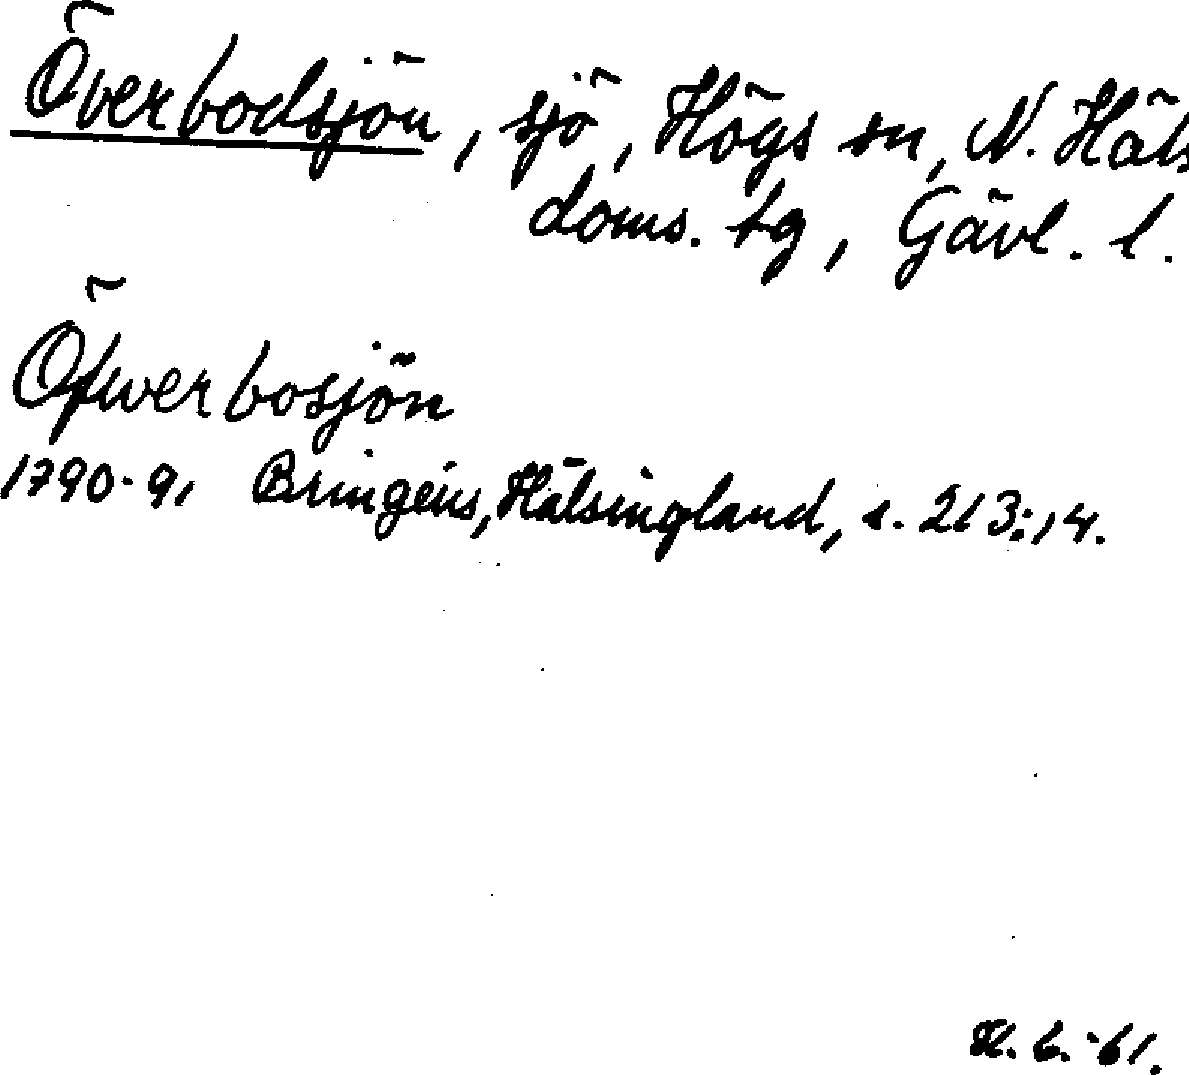 Överbodsjön, sjö, Högs sn, N. Häls
doms. tg, Gävl. l.
Öfwerbosjön
1790-91 Bringéus, Hälsingland, s. 213:14.
H. b. -61.